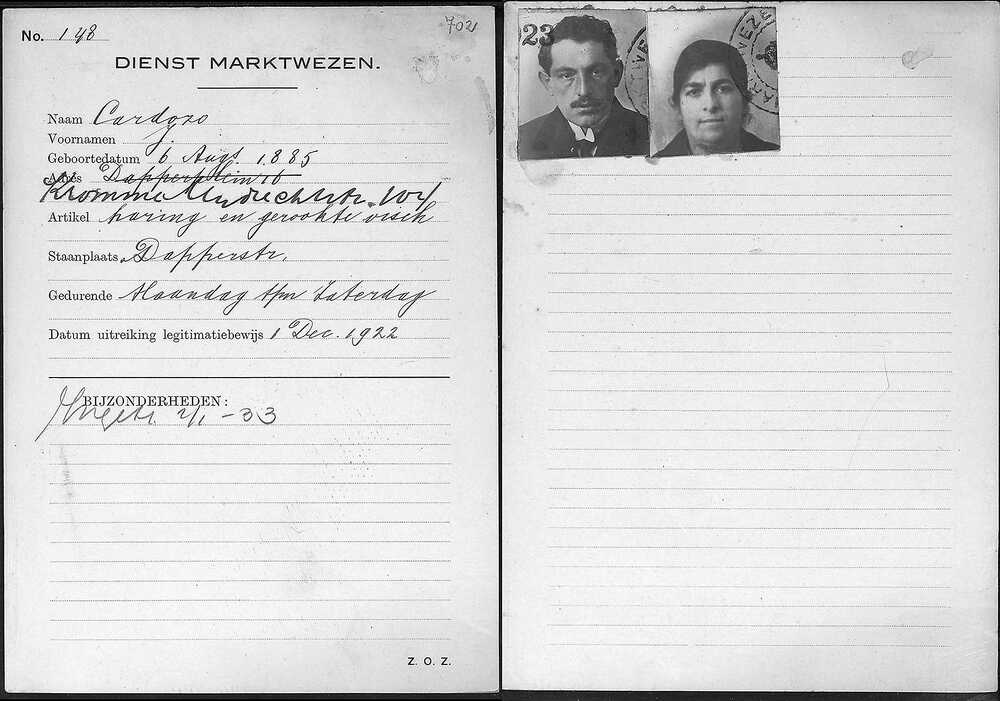 No. 148
702
DIENST MARKTWEZEN.
Naam Cardozo
Voornamen J.
Geboortedatum 6 Aug. 1885
Adres Dapperplein 16
Kromme Mijdrechtstr. 104
Artikel haring en gerookte visch
Staanplaats Dapperstr.
Gedurende Maandag t/m Zaterdag
Datum uitreiking legitimatiebewijs 1 Dec. 1922
BIJZONDERHEDEN:
2/1 - 33
Z. O. Z.
23